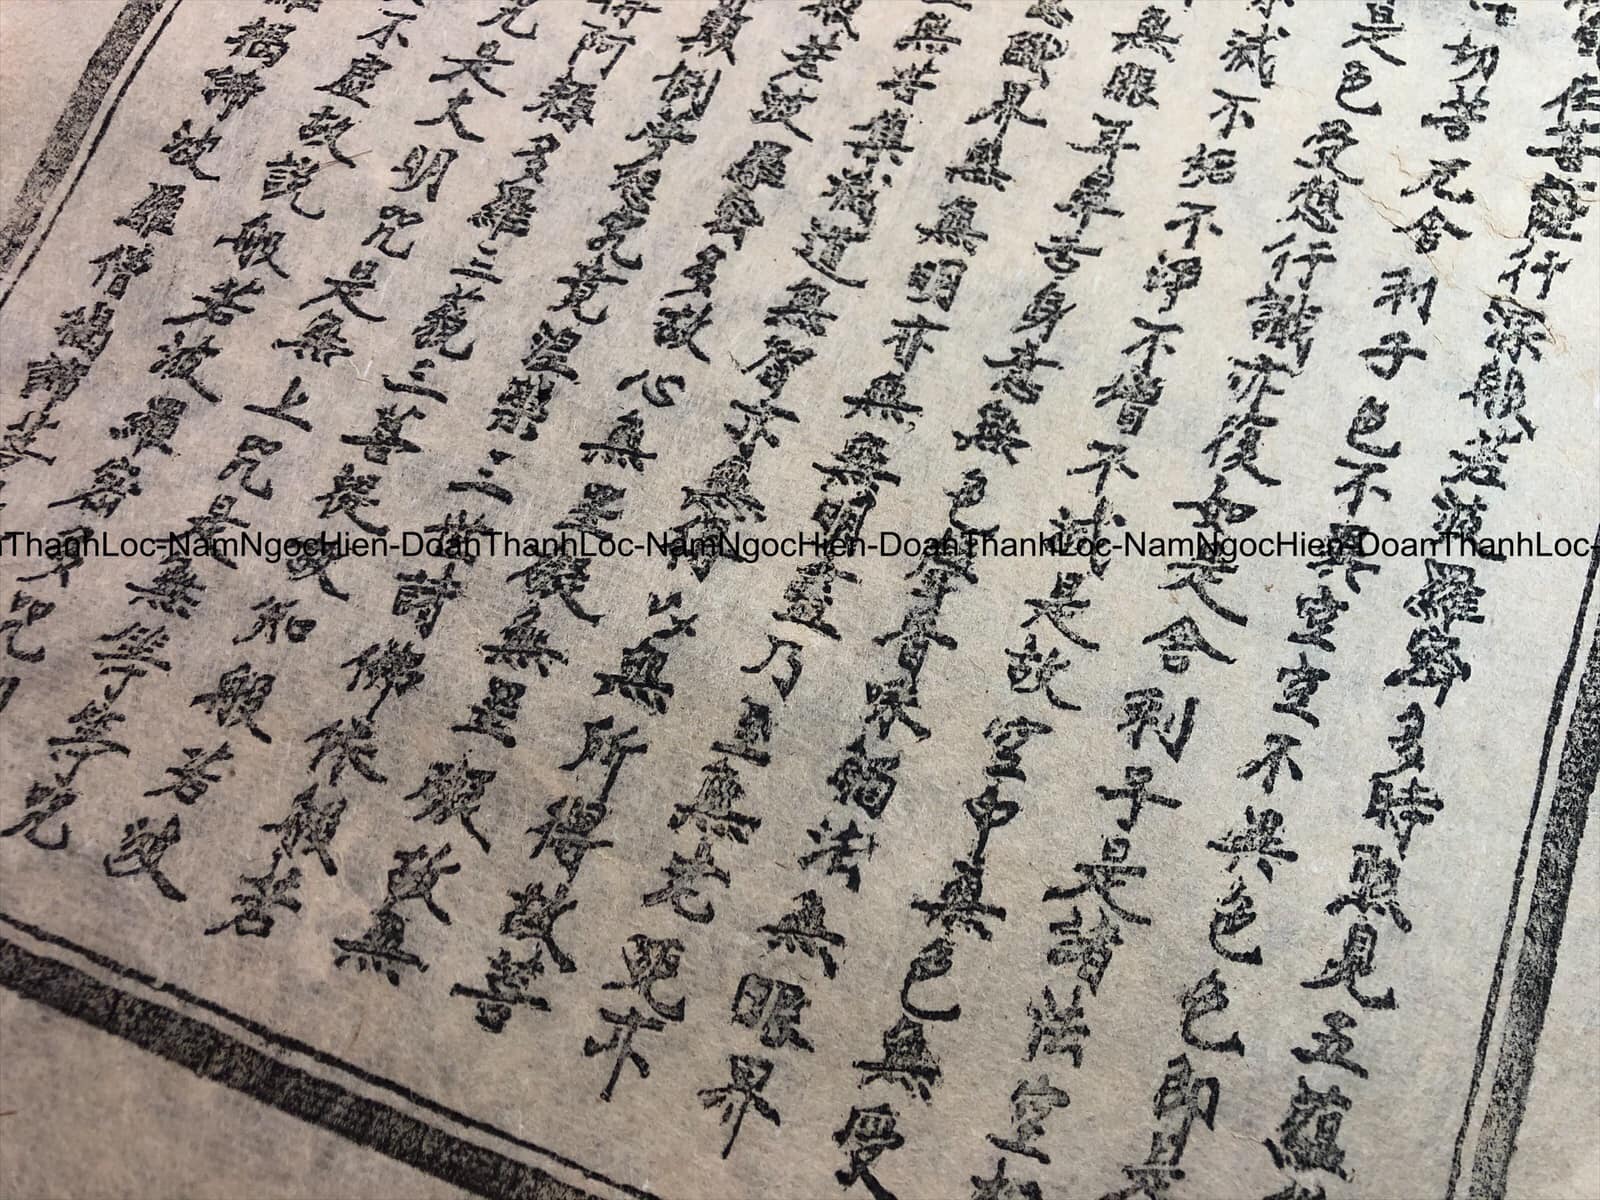 在菩薩行深般若波羅蜜多時照見五蘊
切苦厄舍利子色不異空空不異色色即是
是色受想行識亦復如是舍利子是諸法空相
滅不垢不淨不增不減是故空中無色無受
無眼耳鼻舌身意無色聲香味觸法無眼界
識界無無明亦無無明盡乃至無老死亦
無苦集滅道無智亦無得以無所得故菩
般若波羅蜜多故心無罣礙無罣礙故無
顛倒夢想究竟涅槃三世諸佛依般若
得阿耨多羅三藐三菩提故知般若故
咒是大明咒是無上咒是無等等咒
不虛故說般若波羅蜜多咒
揭諦波羅僧揭諦菩
ThanhLoc-NamNgocHien-DoanThanhLoc-NamNgocHien-DoanThanhLoc-NamNgocHien-DoanThanhLoc-